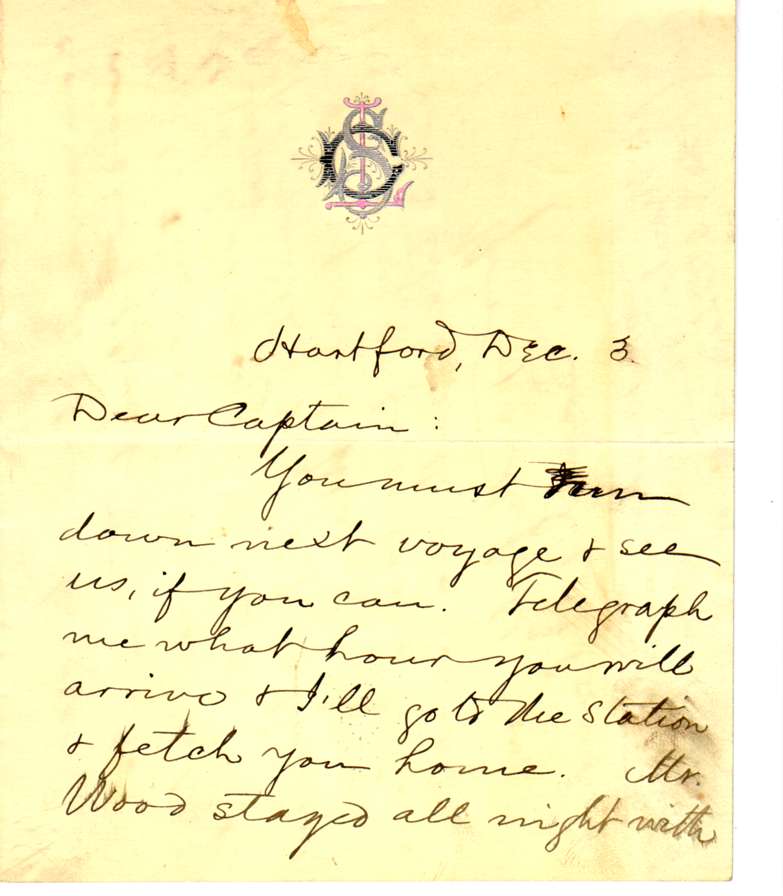 Hartford, Dec. 3.
Dear Captain:
You must run
down next voyage & see
us, if you can. Telegraph
me what hour you will
arrive & I'll go to the station
& fetch you home. Mr.
Wood stayed all night with